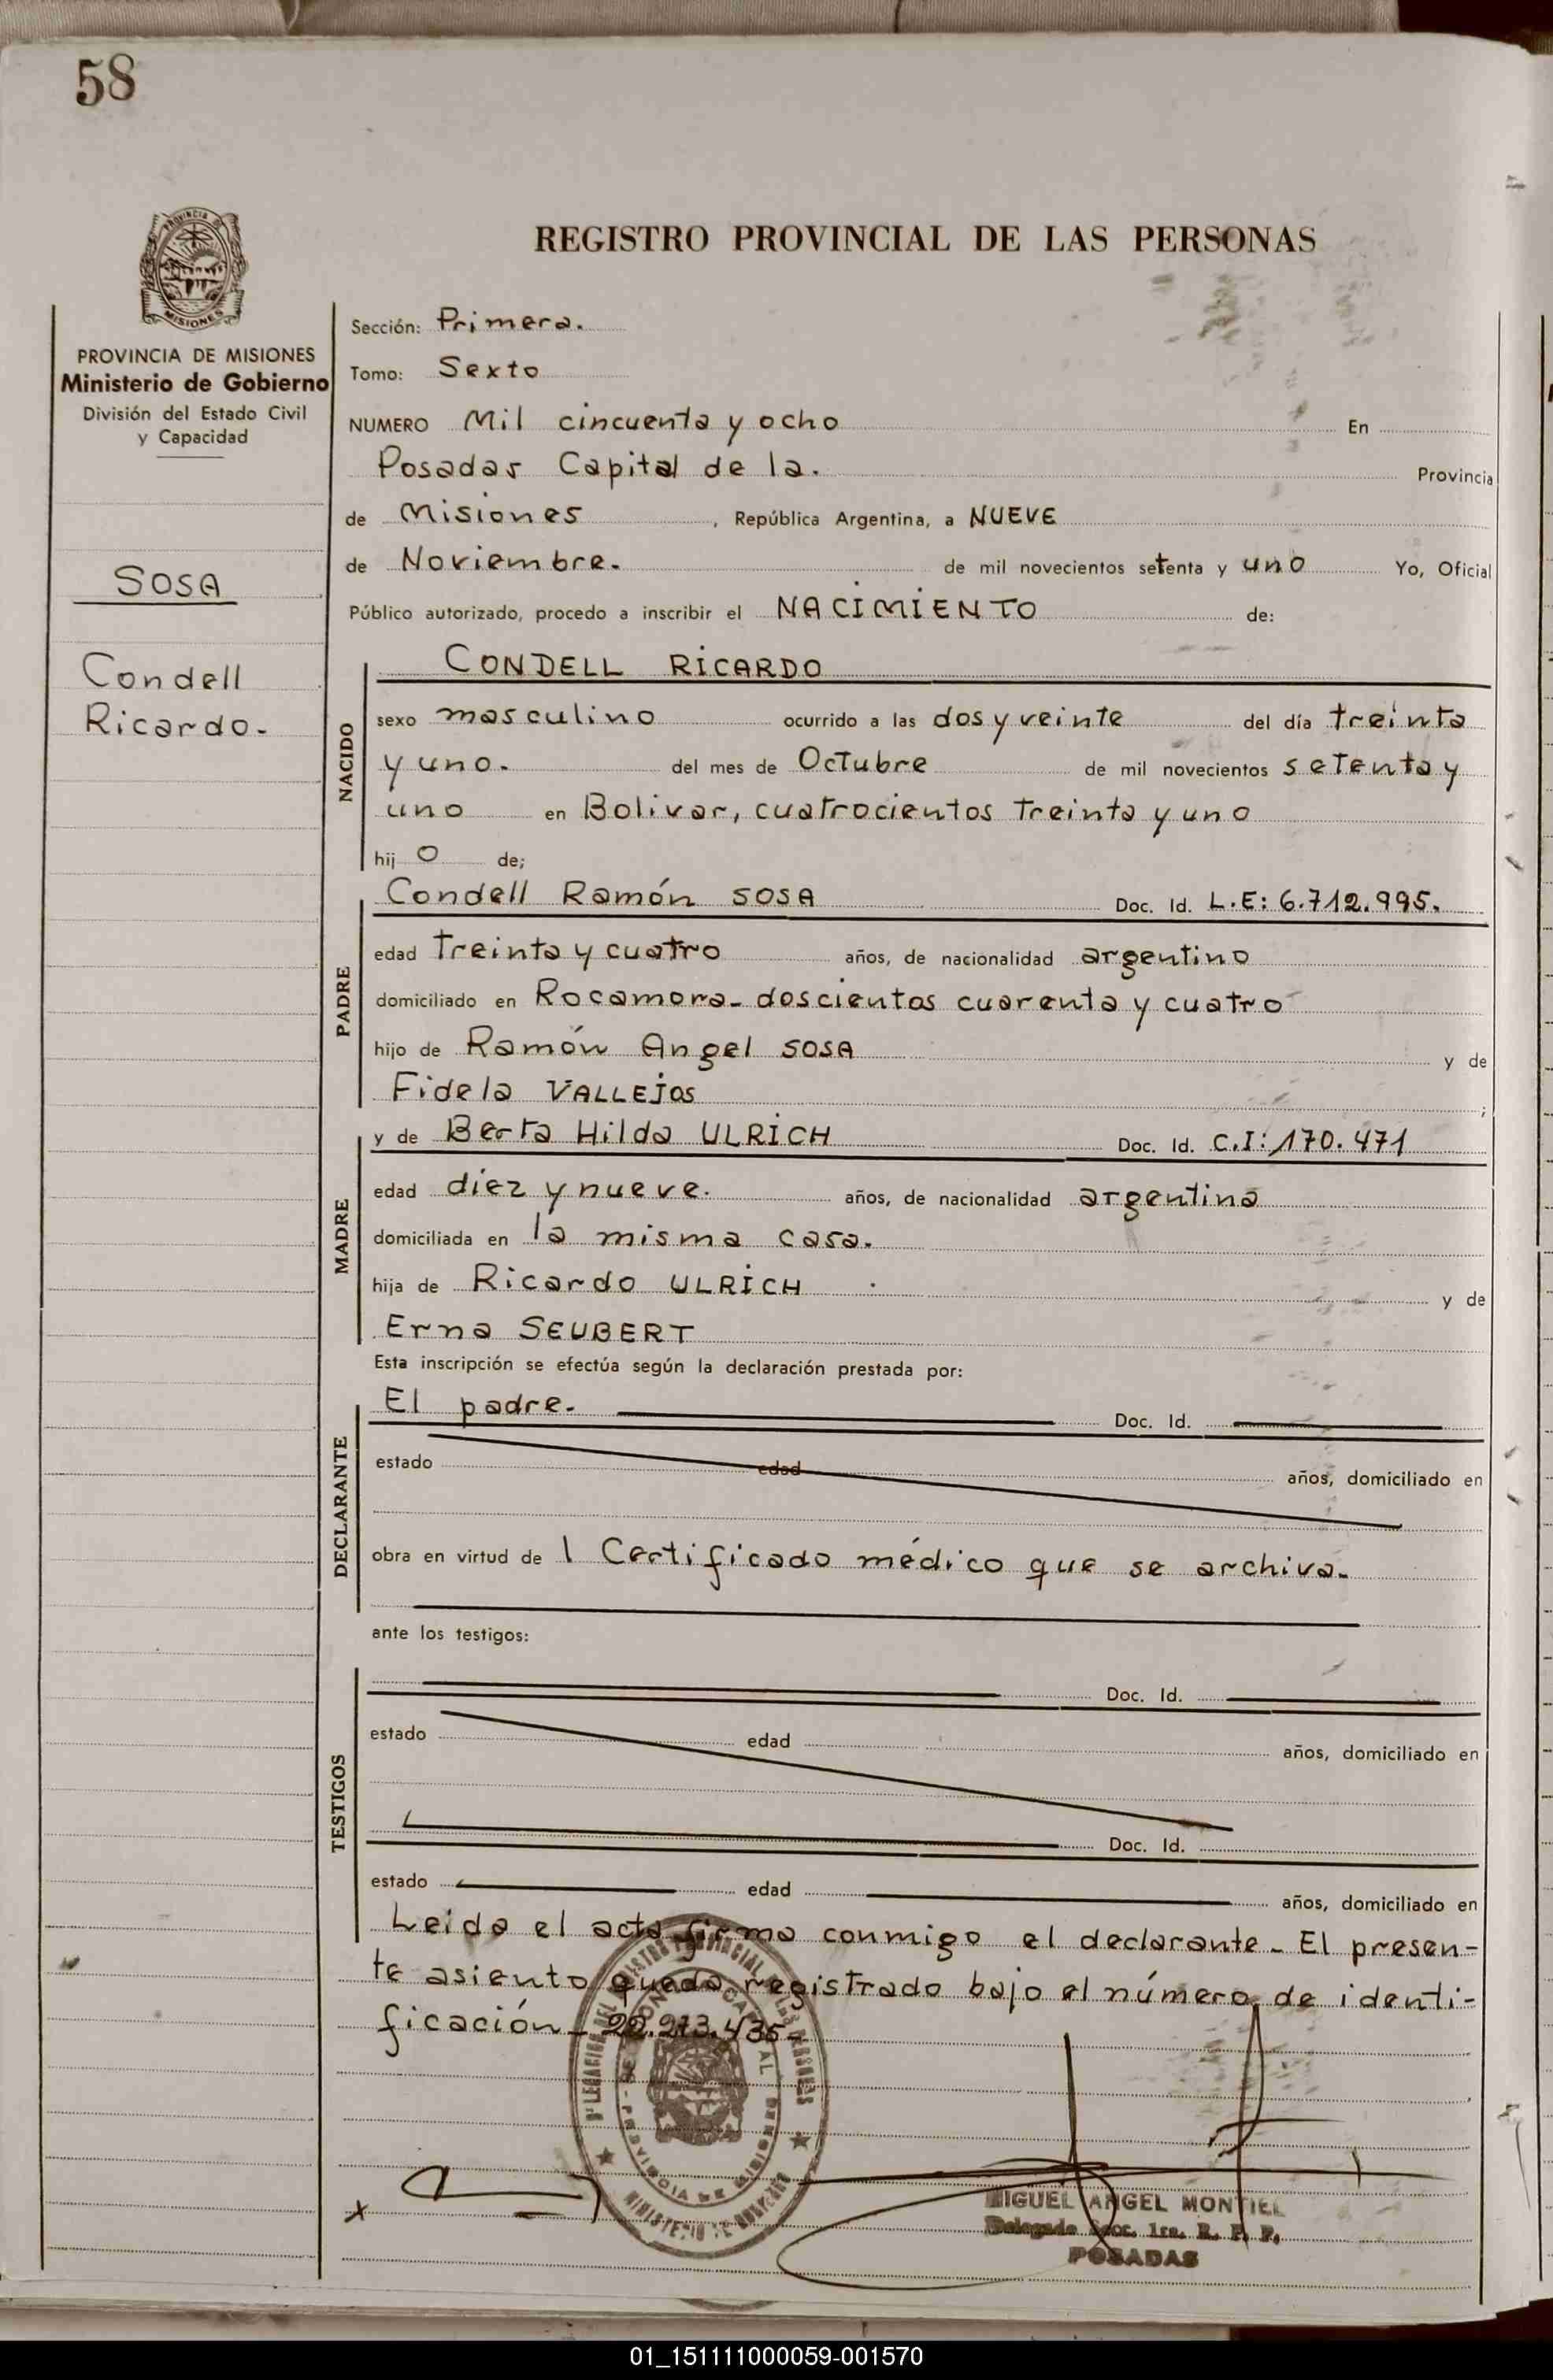 58
REGISTRO PROVINCIAL DE LAS PERSONAS
PROVINCIA DE MISIONES
Ministerio de Gobierno
División del Estado Civil
y Capacidad
SOSA
Condell
Ricardo.-
Sección: Primera.
Tomo: Sexto
NUMERO Mil cincuenta y ocho En
Posadas Capital de la. Provincia
de Misiones, República Argentina, a NUEVE
de Noviembre. de mil novecientos setenta y uno Yo, Oficial
Público autorizado, procedo a inscribir el NACIMIENTO de:
NACIDO
CONDELL RICARDO
sexo masculino ocurrido a las dos y veinte del día treinta
y uno. del mes de Octubre de mil novecientos setenta y
uno en Bolivar, cuatrocientos treinta y uno
hij o de;
PADRE
Condell Ramón SOSA Doc. Id. L.E: 6.712.995.
edad treinta y cuatro años, de nacionalidad argentino
domiciliado en Rocamora- doscientos cuarenta y cuatro
hijo de Ramón Angel SOSA y de
Fidela VALLEJOS;
MADRE
y de Berta Hilda ULRICH Doc. Id. C.I: 170.471
edad diez y nueve. años, de nacionalidad argentina
domiciliada en la misma casa.
hija de Ricardo ULRICH y de
Erna SEUBERT
Esta inscripción se efectúa según la declaración prestada por:
DECLARANTE
El padre. Doc. Id.
estado edad años, domiciliado en
obra en virtud de l Certificado médico que se archiva.
ante los testigos:
TESTIGOS
Doc. Id.
estado edad años, domiciliado en
Doc. Id.
estado edad años, domiciliado en
Leida el acta firma conmigo el declarante- El presen-
te asiento queda registrado bajo el número de identi-
ficación- 22.273.435-
MIGUEL ANGEL MONTIEL
Delegado Secc. 1ra. R. P. P.
POSADAS
01_151111000059-001570